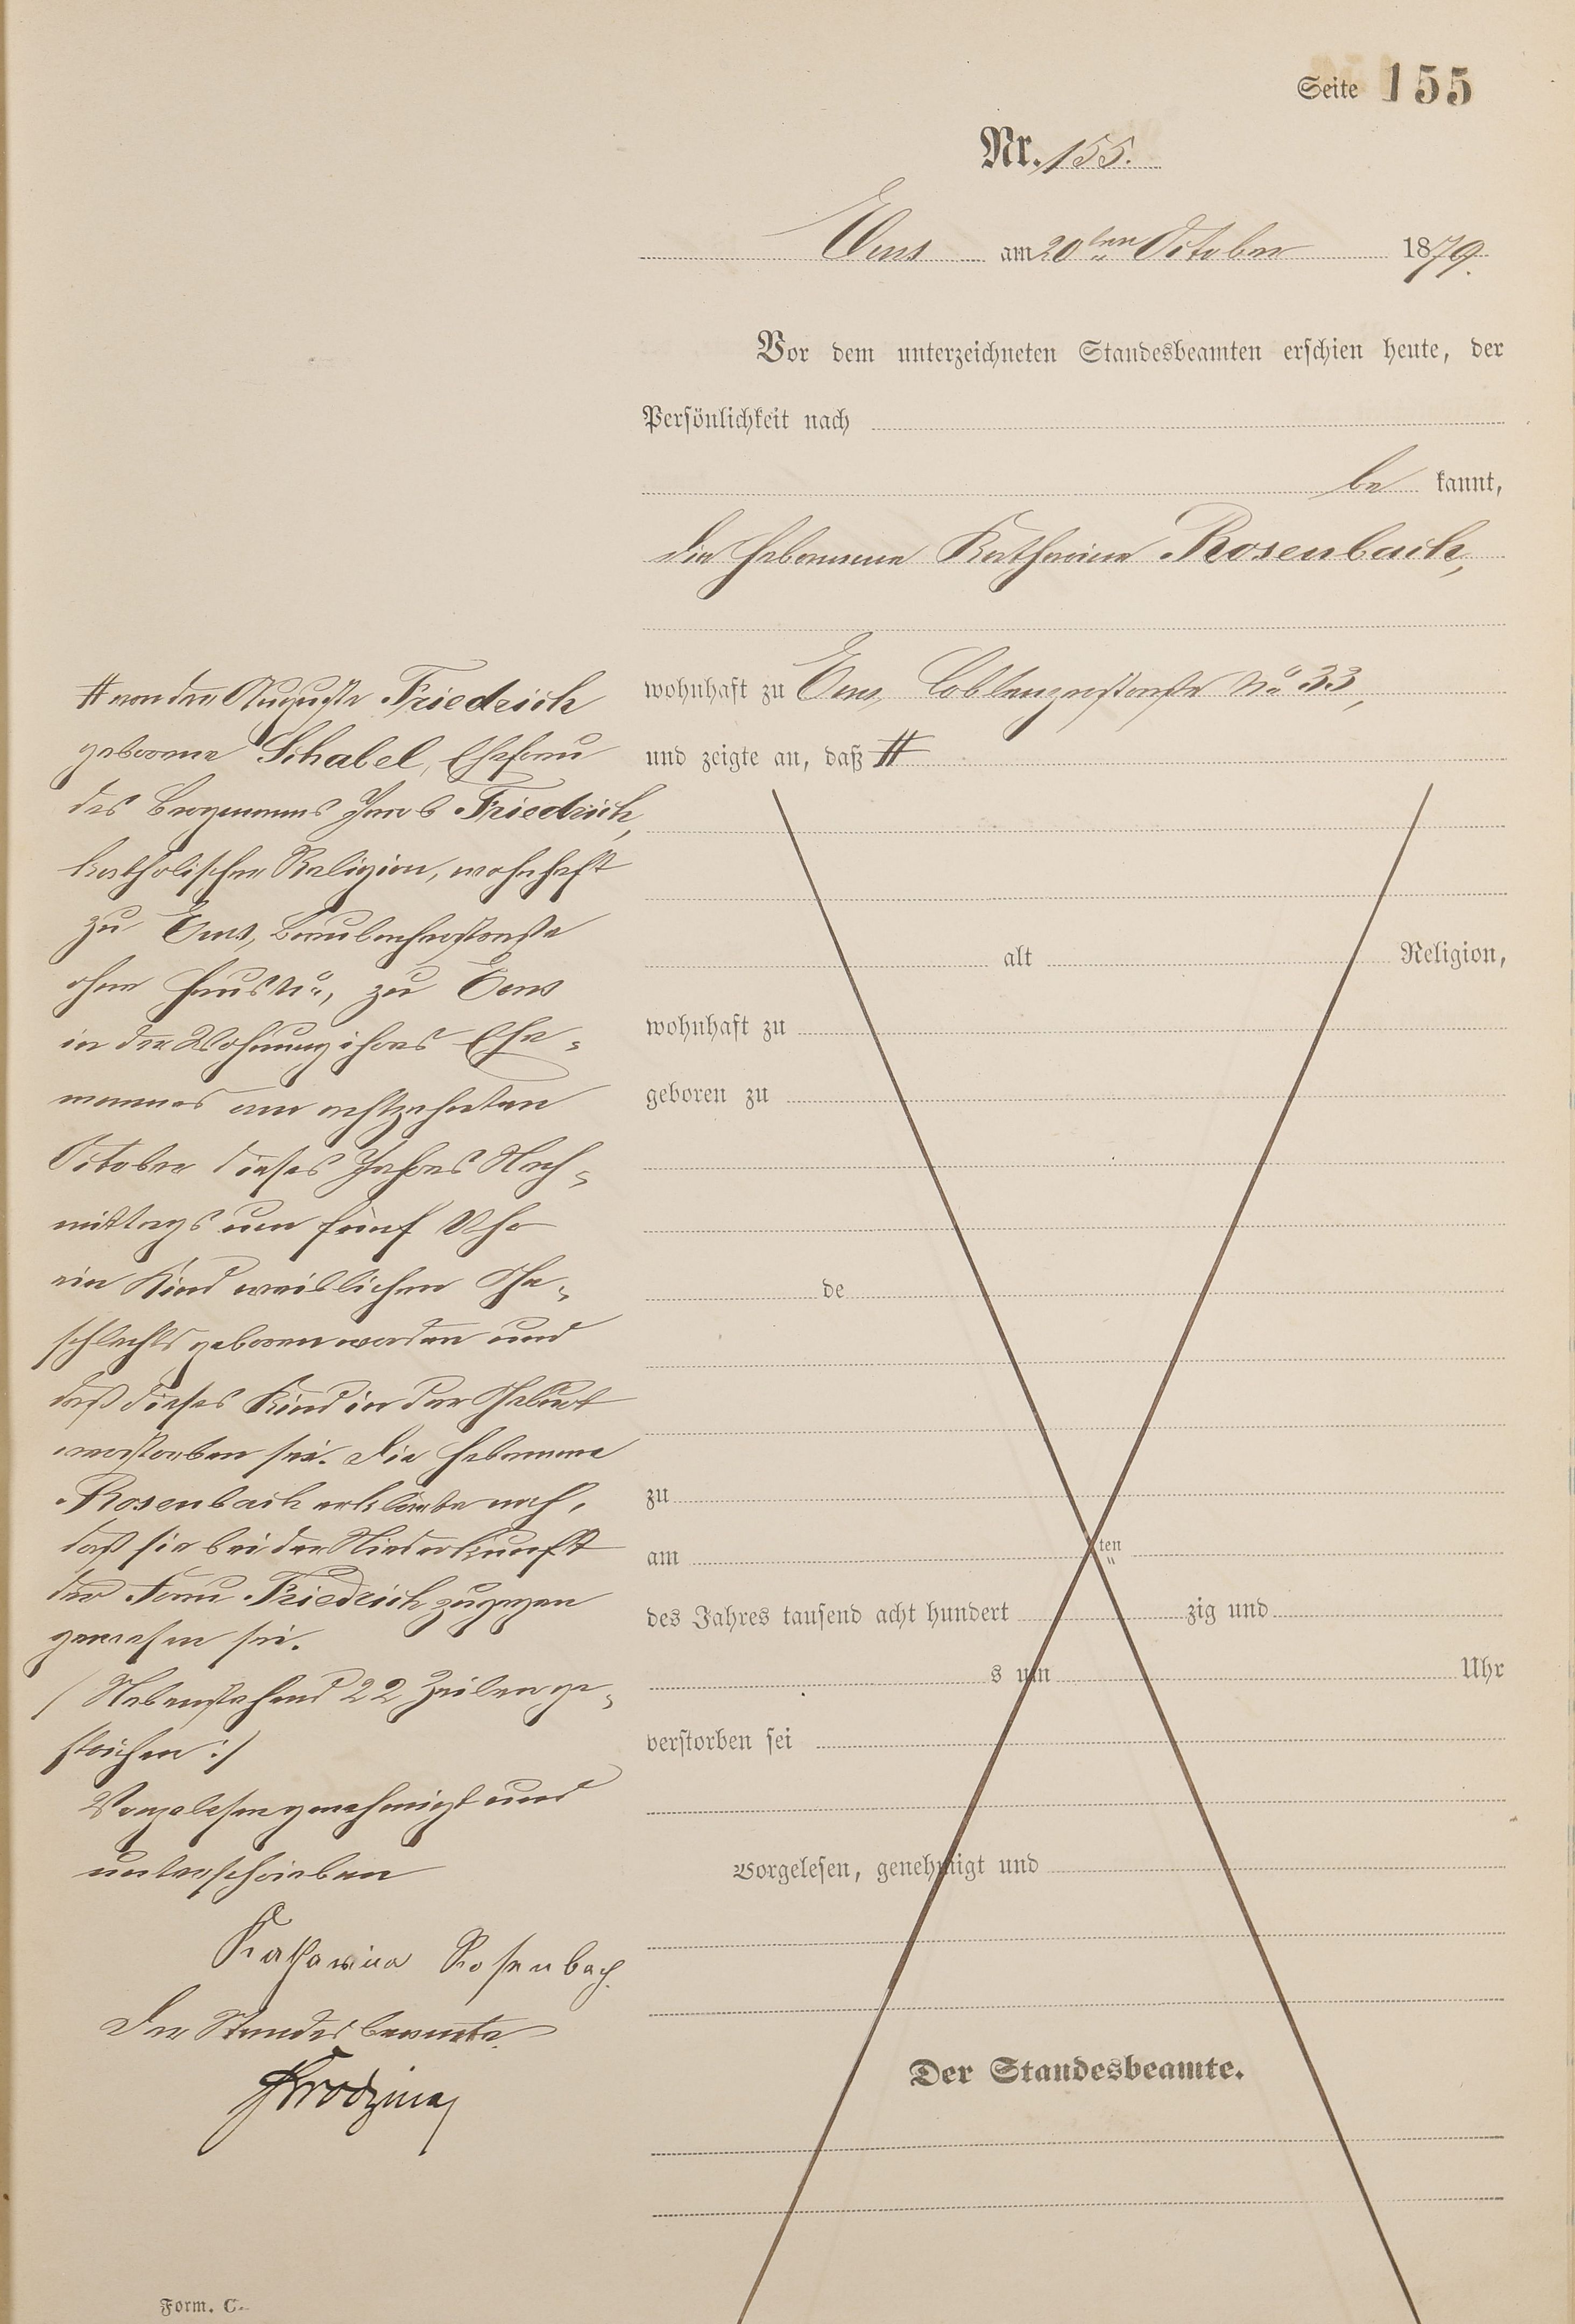 Seite 155
Nr. 155.
Ems am 20ten October 1879.
Vor dem unterzeichneten Standesbeamten erschien heute, der
Persönlichkeit nach
be kannt,
die Hebamme Katharina Rosenbach,
wohnhaft zu Ems, Coblenzerstraße No 33,
und zeigte an, daß #
# von der Auguste Friedrich
geborene Schabel, Ehefrau
des Bergmanns Jacob Friedrich,
katholischer Religion, wohnhaft
zu Ems, Braubacherstraße
ohne Hausno, zu Ems
in der Wohnung ihres Ehe-
mannes am achtzehnten
October dieses Jahres Nach-
mittags um fünf Uhr
ein Kind weiblichen Ge-
schlechts geboren worden und
daß dieses Kind in der Geburt
verstorben sei. Die Hebamme
Rosenbach erklärte noch,
daß sie bei der Niederkunft
der Frau Friedrich zugegen
gewesen sei.
/ Nebenstehend 22 Zeilen ge-
strichen :/
Vorgelesen genehmigt und
unterschrieben
Katharina Rosenbach.
Der Standesbeamte
alt Religion,
wohnhaft zu
geboren zu
de
zu
am ten
des Jahres tausend acht hundert zig und
s um Uhr
verstorben sei
Vorgelesen, genehmigt und
Der Standesbeamte.
Form. C.